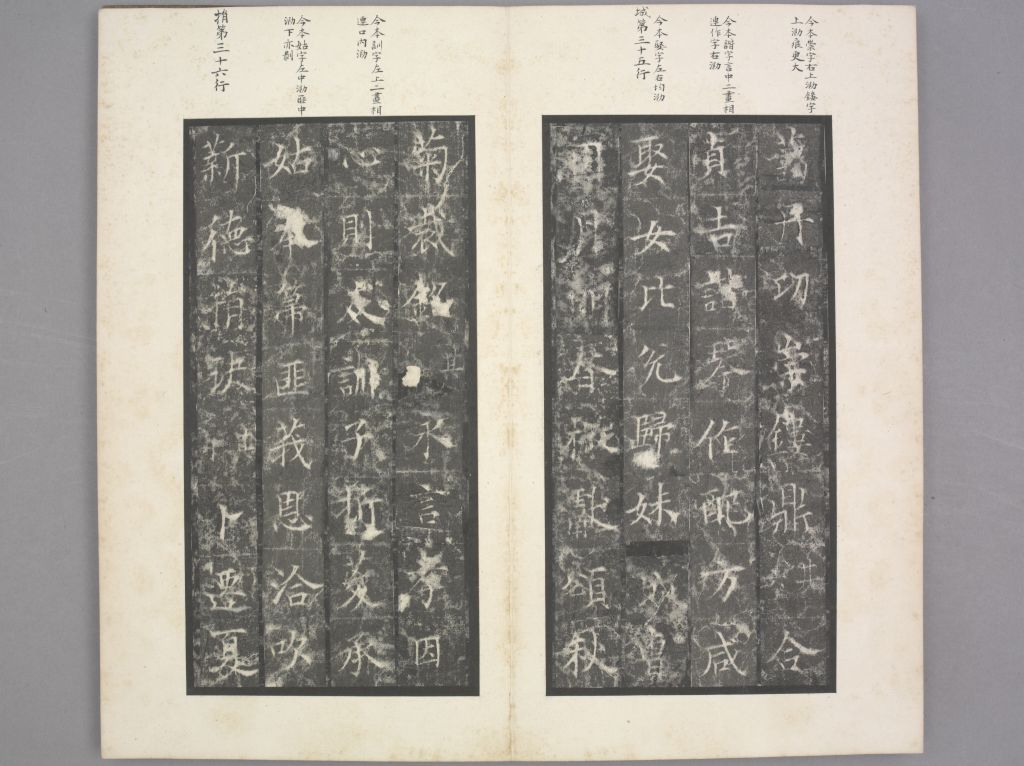 今本崇字右上泐鏤字
上泐痕更大
今本諧字言中二畫相
連作字右泐
今本娶字左右均泐
城第三十五行
丹切崇鏤鼎其合
貞吉諧琴作配方咸
娶女比兌歸妹
月春椒獻頌秋
今本訓字左上二畫相
連口內泐
今本姑字左中泐匪中
泐下亦剝
捎第三十六行
菊裁銘其永言孝因
心則友訓子斯友承
姑奉箒匪莪恩洽吹
新德捎訣其卜遷夏